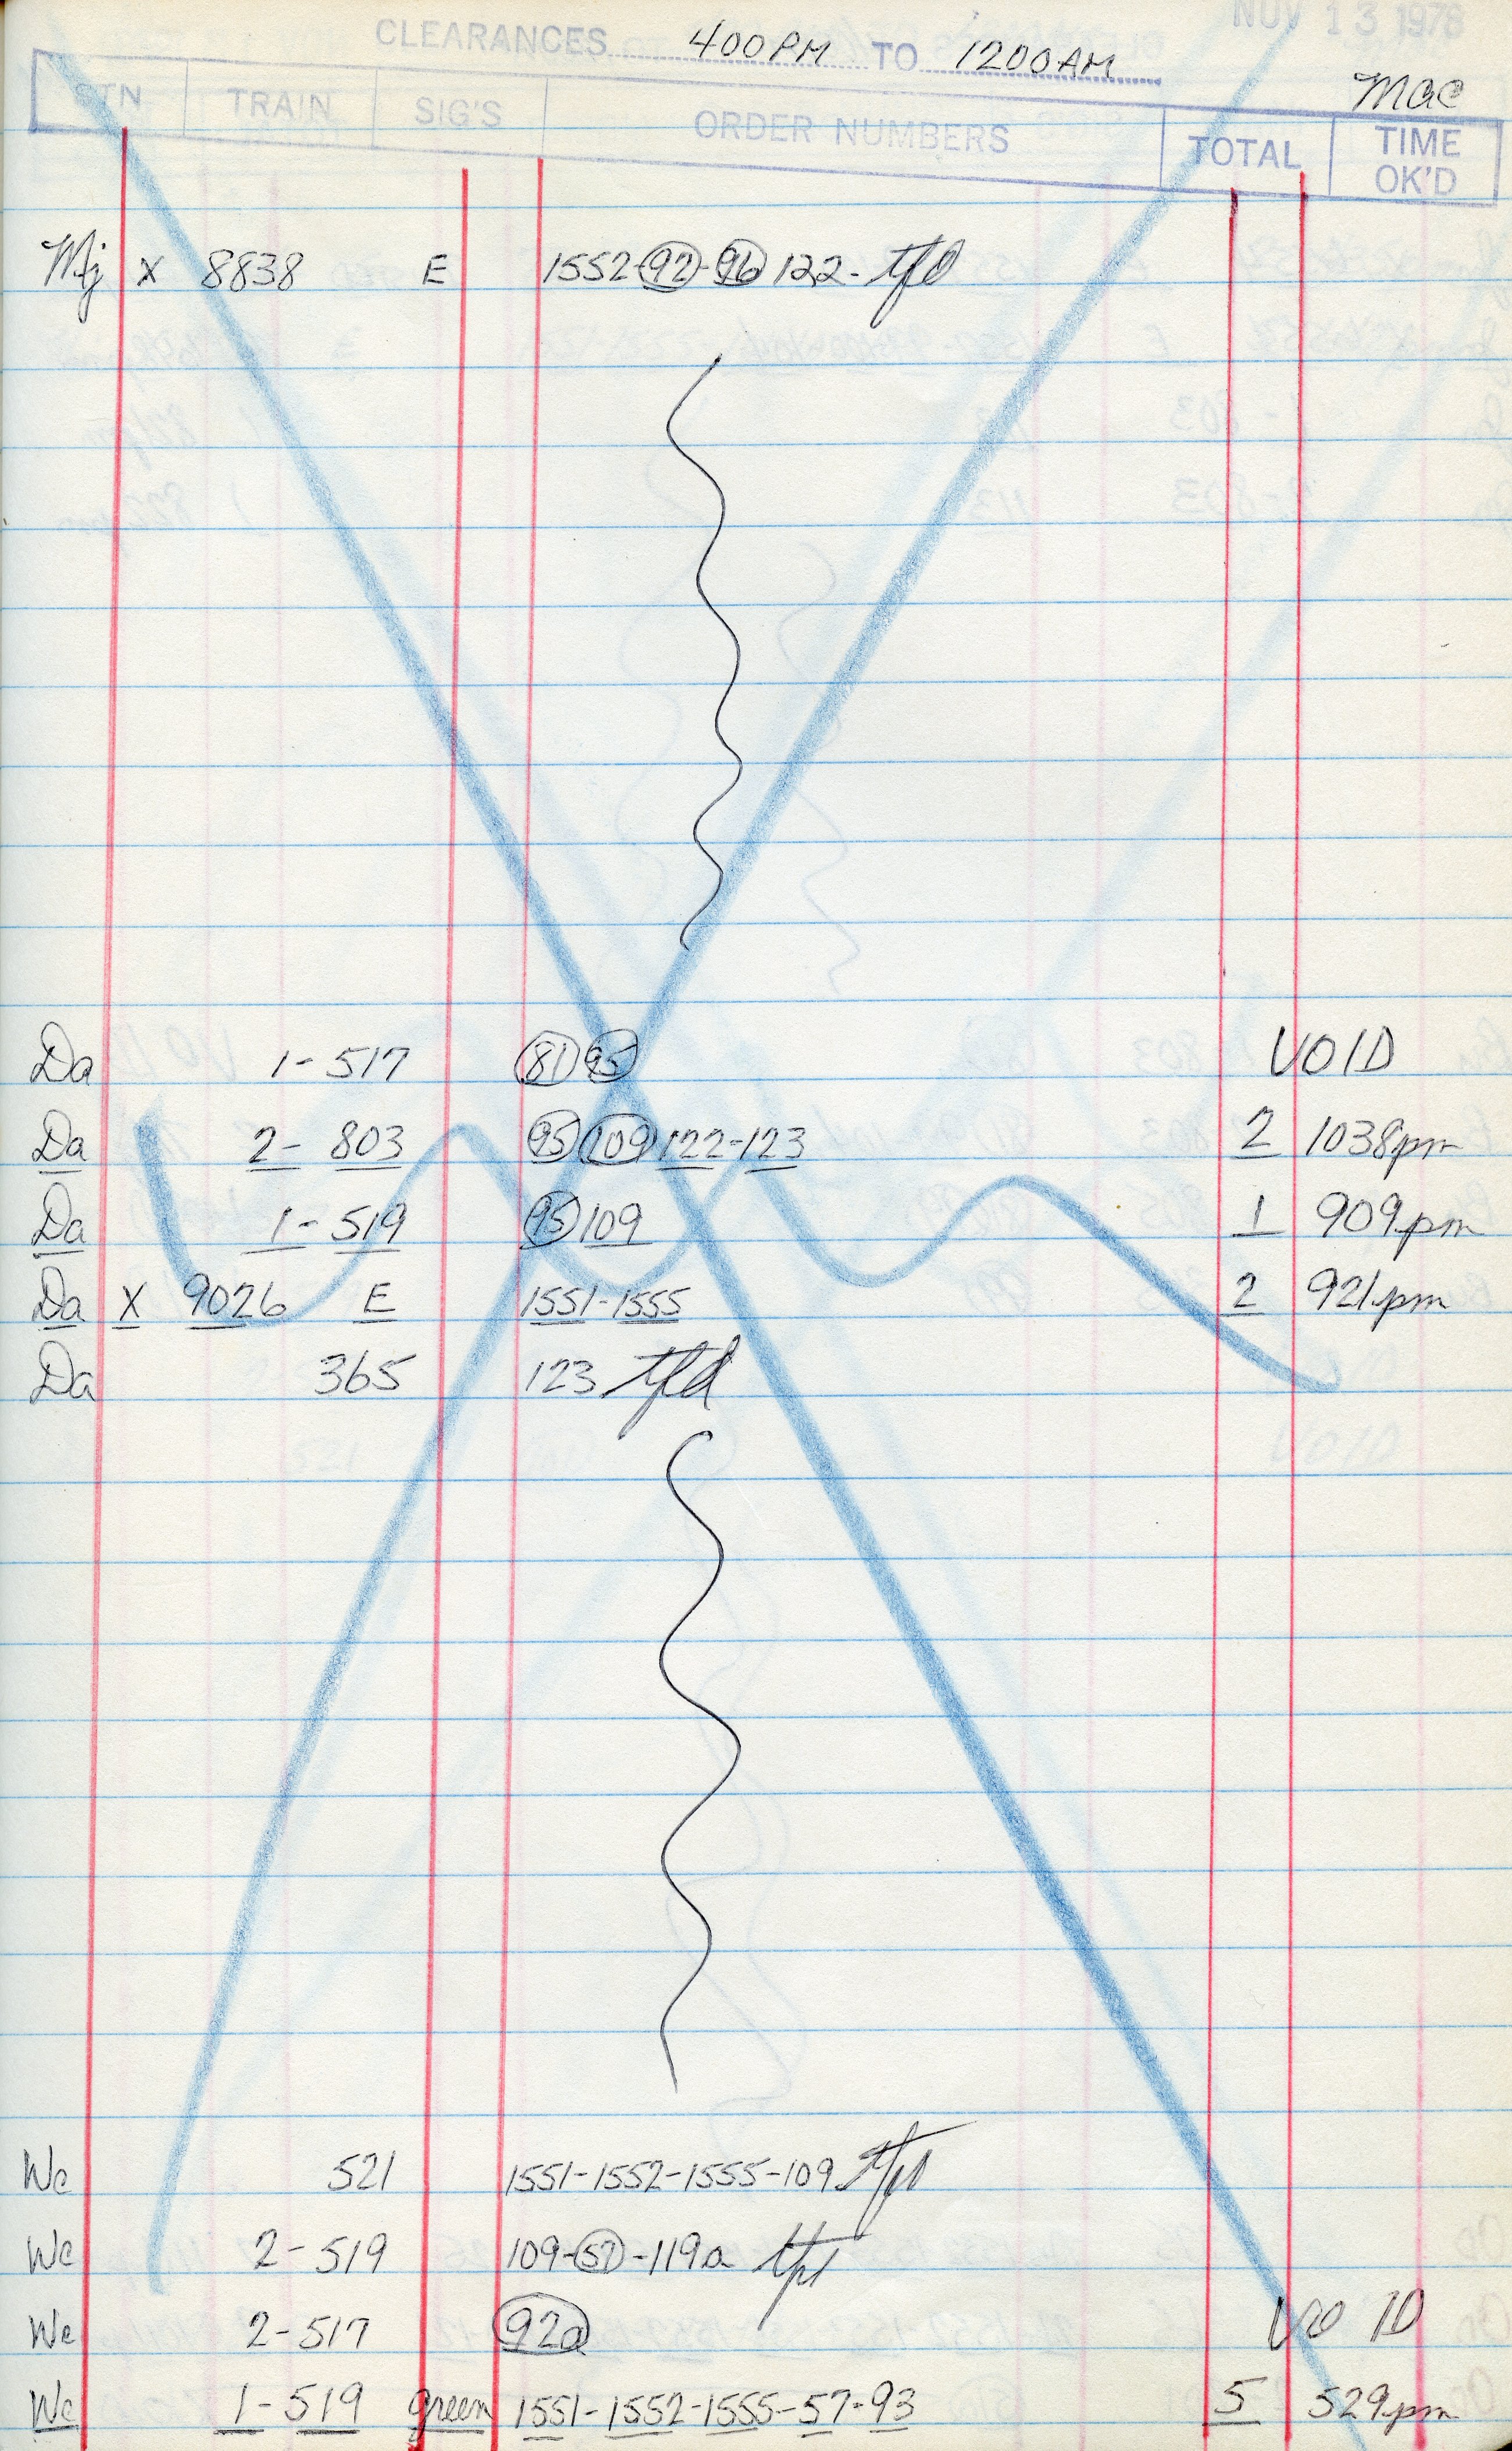 NOV 13 1978
CLEARANCES 400PM TO 1200AM
Mac
STN TRAIN SIG'S ORDER NUMBERS TOTAL TIME OK'D
Mj X 8838 E 1552-92-96 122- tfd
Da 1-517 81 95 VOID
Da 2-803 95 109 122-123 2 1038pm
Da 1-519 95 109 1 909pm
Da X 9026 E 1551-1555 2 921pm
Da 365 123 tfd
Wc 521 1551-1552-1555-109 tfd
Wc 2-519 109-57-119a tfd
Wc 2-517 92a VOID
Wc 1-519 green 1551-1552-1555-57-93 5 529pm